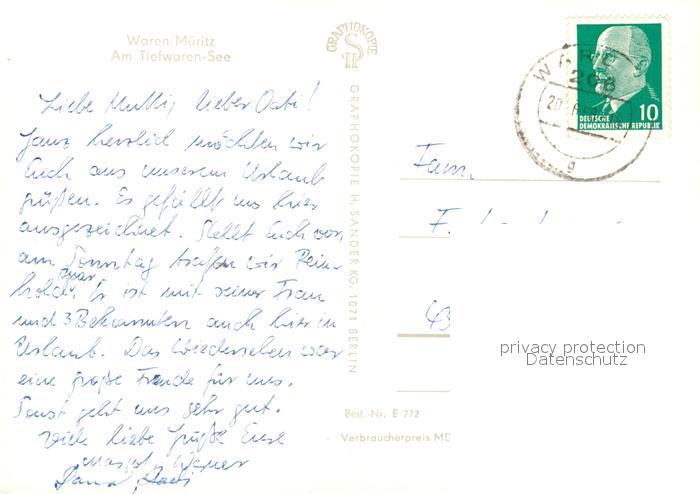 Waren/Müritz
Am Tiefwaren-See
Liebe Mutti, lieber Vati!
Ganz herzlich möchten wir
Euch aus unserem Urlaub
grüßen. Es gefällt uns hier
ausgezeichnet. Stellt Euch vor,
am Sonntag trafen wir Rein-
hold. Er ist mit seiner Frau
und 3 Bekannten auch hier in
Urlaub. Das Wiedersehen war
eine große Freude für uns.
Sonst geht uns sehr gut.
Viele liebe Grüße Eure
Werner
GRAPHOKOPIE
SH
GRAPHOKOPIE H. SANDER KG, 1071 BERLIN
WARE
208
g
10
DEUTSCHE
DEMOKRATISCHE REPUBLIK
Fam.
F.
43
privacy protection
Datenschutz
Best.-Nr. E 772
Verbraucherpreis MD